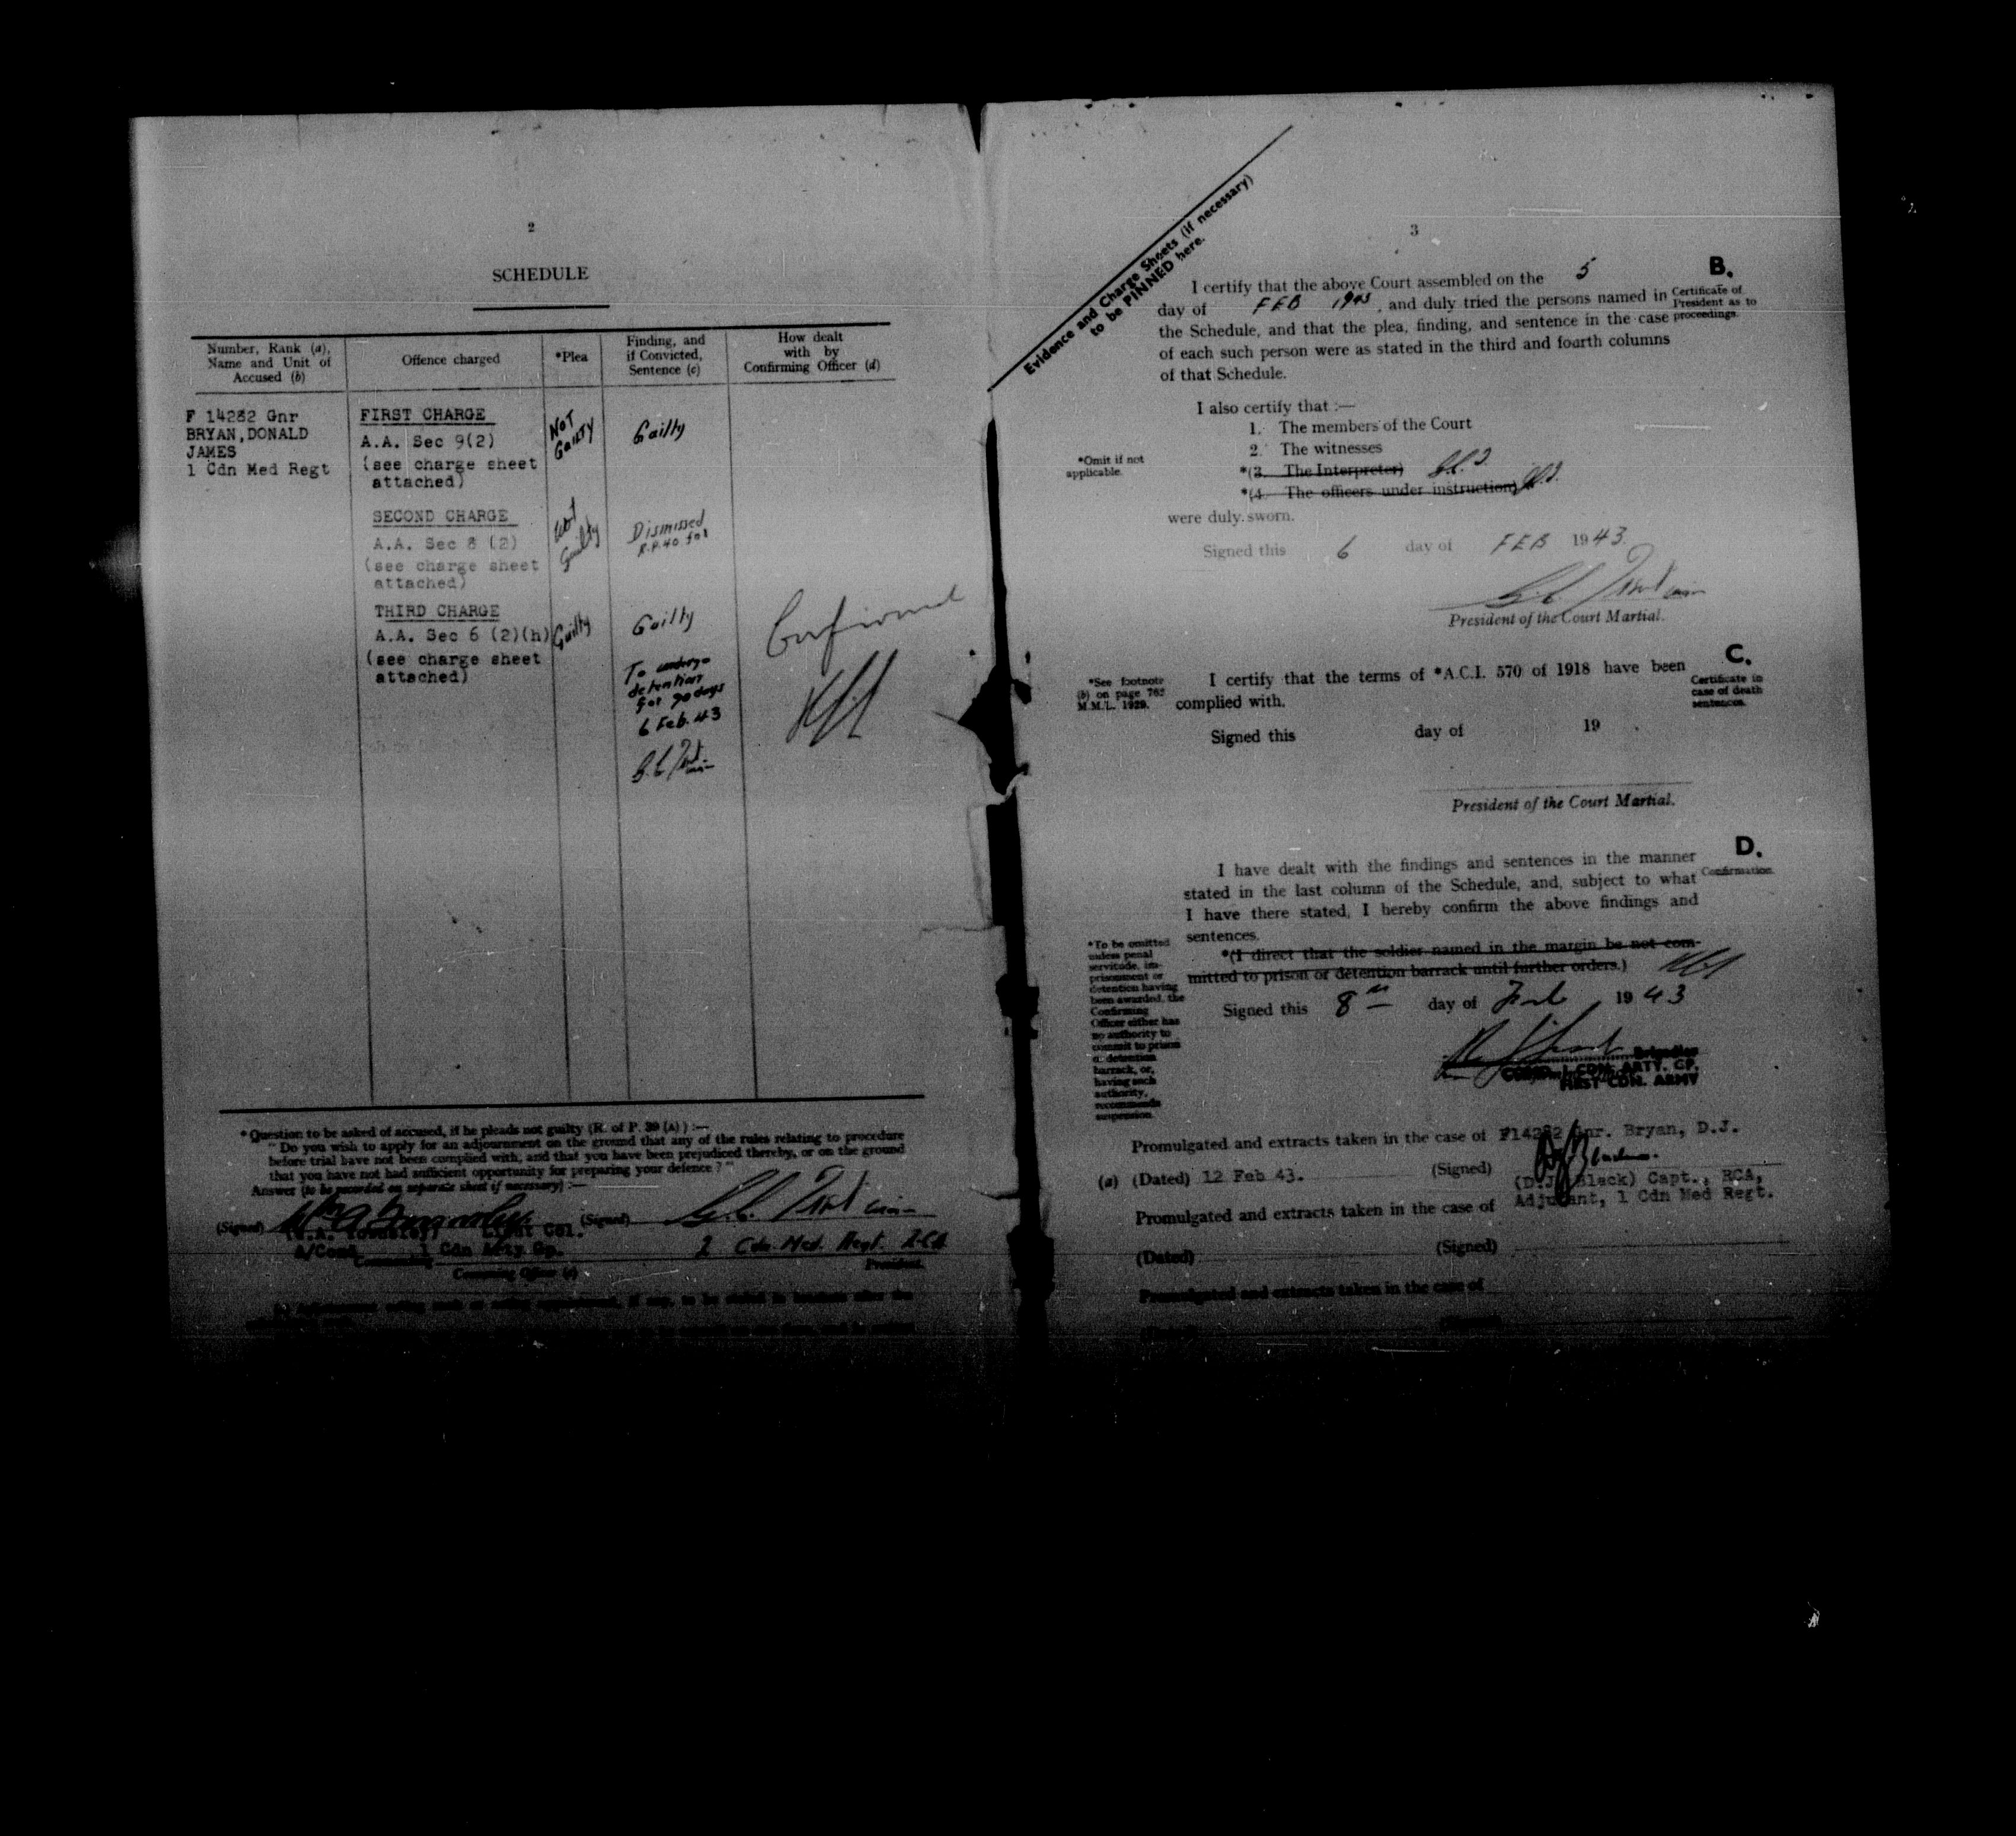 2
SCHEDULE
Number, Rank (a), Name and Unit of Accused (b)
Offence charged
*Plea
Finding, and if Convicted, Sentence (c)
How dealt with by Confirming Officer (d)
F 14282 Gnr
BRYAN, DONALD
JAMES
1 Cdn Med Regt
FIRST CHARGE
A.A. Sec 9(2)
(see charge sheet
attached)
NOT
GUILTY
Guilty
SECOND CHARGE
A.A. Sec 8 (2)
(see charge sheet
attached)
Not
Guilty
Dismissed
R.P. 40
THIRD CHARGE
A.A. Sec 6 (2)(h)
(see charge sheet
attached)
Guilty
Guilty
To undergo
detention
for 90 days
6 Feb. 43
Confirmed
*Question to be asked of accused, if he pleads not guilty (R. of P. 39 (A) ) :—
"Do you wish to apply for an adjournment on the ground that any of the rules relating to procedure
before trial have not been complied with, and that you have been prejudiced thereby, or on the ground
that you have not had sufficient opportunity for preparing your defence ?"
Answer (to be recorded on separate sheet if necessary) :—
(Signed)
Lieut Col.
(Signed)
A/Comd 1 Cdn Arty Gp.
2 Cdn. Med. Regt. RCA
Convening Officer (e)
President.
3
Evidence and Charge Sheets (if necessary)
to be PINNED here.
B.
Certificate of
President as to
proceedings.
I certify that the above Court assembled on the 5
day of FEB 1943, and duly tried the persons named in
the Schedule, and that the plea, finding, and sentence in the case
of each such person were as stated in the third and fourth columns
of that Schedule.
I also certify that :—
1. The members of the Court
2. The witnesses
*Omit if not
applicable.
*(3. The Interpreter)
*(4. The officers under instruction)
were duly sworn.
Signed this 6 day of FEB 1943.
President of the Court Martial.
C.
Certificate in
case of death
sentences.
*See footnote
(b) on page 765
M.M.L. 1929.
I certify that the terms of *A.C.I. 570 of 1918 have been
complied with.
Signed this day of 19 .
President of the Court Martial.
D.
Confirmation.
I have dealt with the findings and sentences in the manner
stated in the last column of the Schedule, and, subject to what
I have there stated, I hereby confirm the above findings and
sentences.
*To be omitted
unless penal
servitude, im-
prisonment or
detention having
been awarded, the
Confirming
Officer either has
no authority to
commit to prison
or detention
barrack, or,
having such
authority,
recommends
suspension.
*(I direct that the soldier named in the margin be not com-
mitted to prison or detention barrack until further orders.)
Signed this 8th day of Feb 1943
Brigadier
COMD. 1 CDN. ARTY. GP.
FIRST CDN. ARMY
Promulgated and extracts taken in the case of F14282 Gnr. Bryan, D.J.
(a) (Dated) 12 Feb 43. (Signed)
(D.J. Black) Capt., RCA,
Adjutant, 1 Cdn Med Regt.
Promulgated and extracts taken in the case of
(Dated) (Signed)
Promulgated and extracts taken in the case of